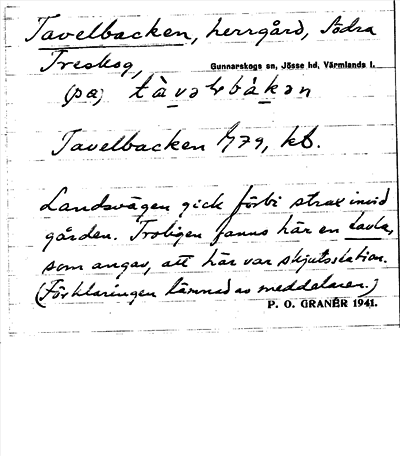 Tavelbacken, herrgård, Södra
Treskog, Gunnarskogs sn, Jösse hd, Värmlands l.
(på) tàvəlbàkən
Tavelbacken 1/2 79, kb.
Landsvägen gick förbi strax invid
gården. Troligen fanns här en tavla,
som angav, att här var skjutsstation.
(Förklaringen lämnad av meddelaren.)
P. O. GRANÉR 1941.